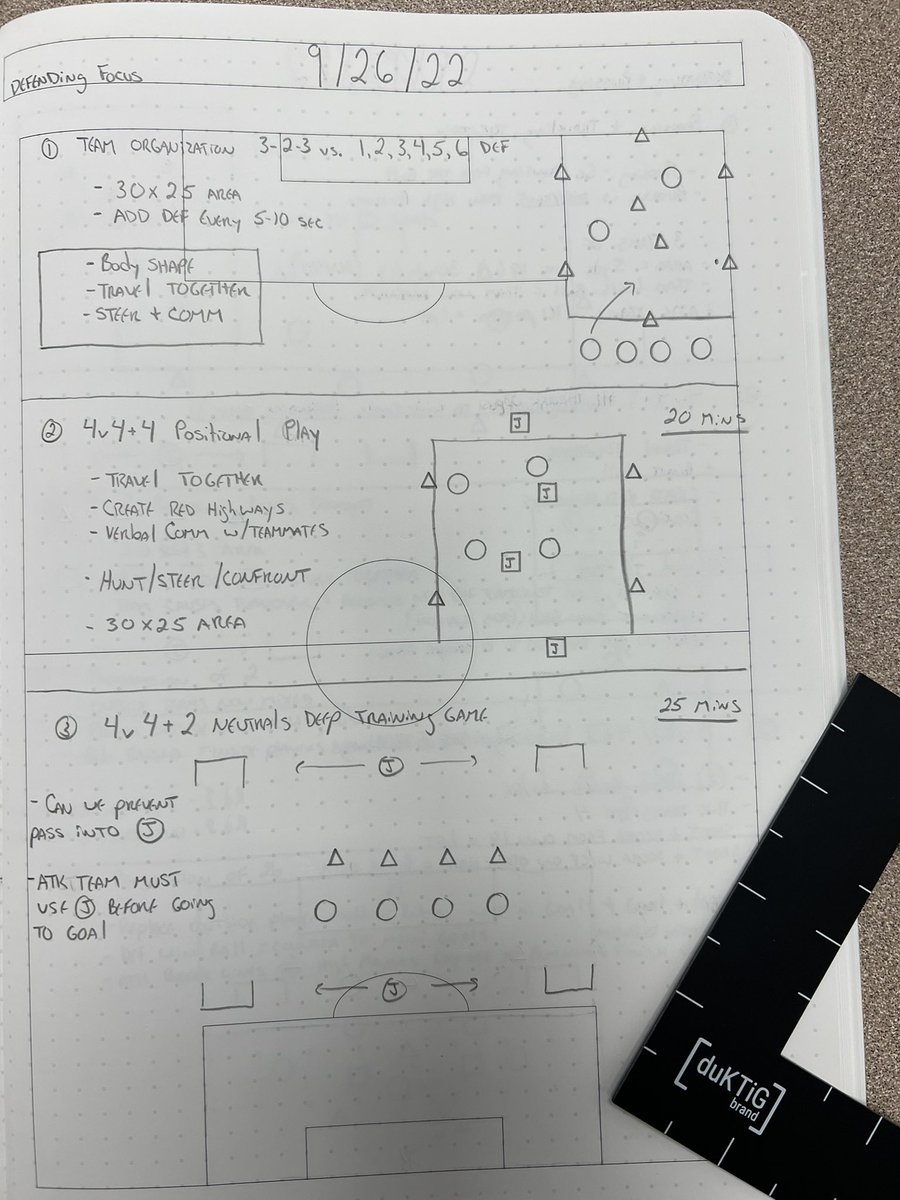 DEFENDING FOCUS
9/26/22
① TEAM ORGANIZATION 3-2-3 vs. 1,2,3,4,5,6 DEF
- 30x25 AREA
- ADD DEF EVERY 5-10 SEC
- BODY SHAPE
- TRAVEL TOGETHER
- STEER + COMM
② 4v4+4 POSITIONAL PLAY
20 MINS
J
- TRAVEL TOGETHER
- CREATE RED HIGHWAYS
- VERBAL COMM W/TEAMMATES
J
J
· HUNT/STEER/CONFRONT
- 30x25 AREA
J
③ 4v4+2 NEUTRALS DEEP TRAINING GAME
25 MINS
J
- CAN WE PREVENT
PASS INTO Ⓙ
- ATK TEAM MUST
USE Ⓙ BEFORE GOING
TO GOAL
J
[duKTiG
brand]